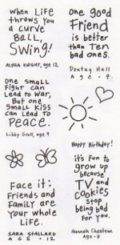 When Life
throws you
a curve
Ball,
SWing!
Age 12
one small
fight can
Lead to War.
But one
Small Kiss
can Lead to
Peace.
Libby Scott, age 9
Face it:
Friends and
Family are
Your whole
Life.
SARA STALLARD
AGE · 12
one good
Friend
is better
than Ten
bad ones.
AGE · 9
Happy Birthday!
it's fun to
grow up
because
TV and
cookies
stop
being bad
for you.
Hannah Cheatham
AGE · 8